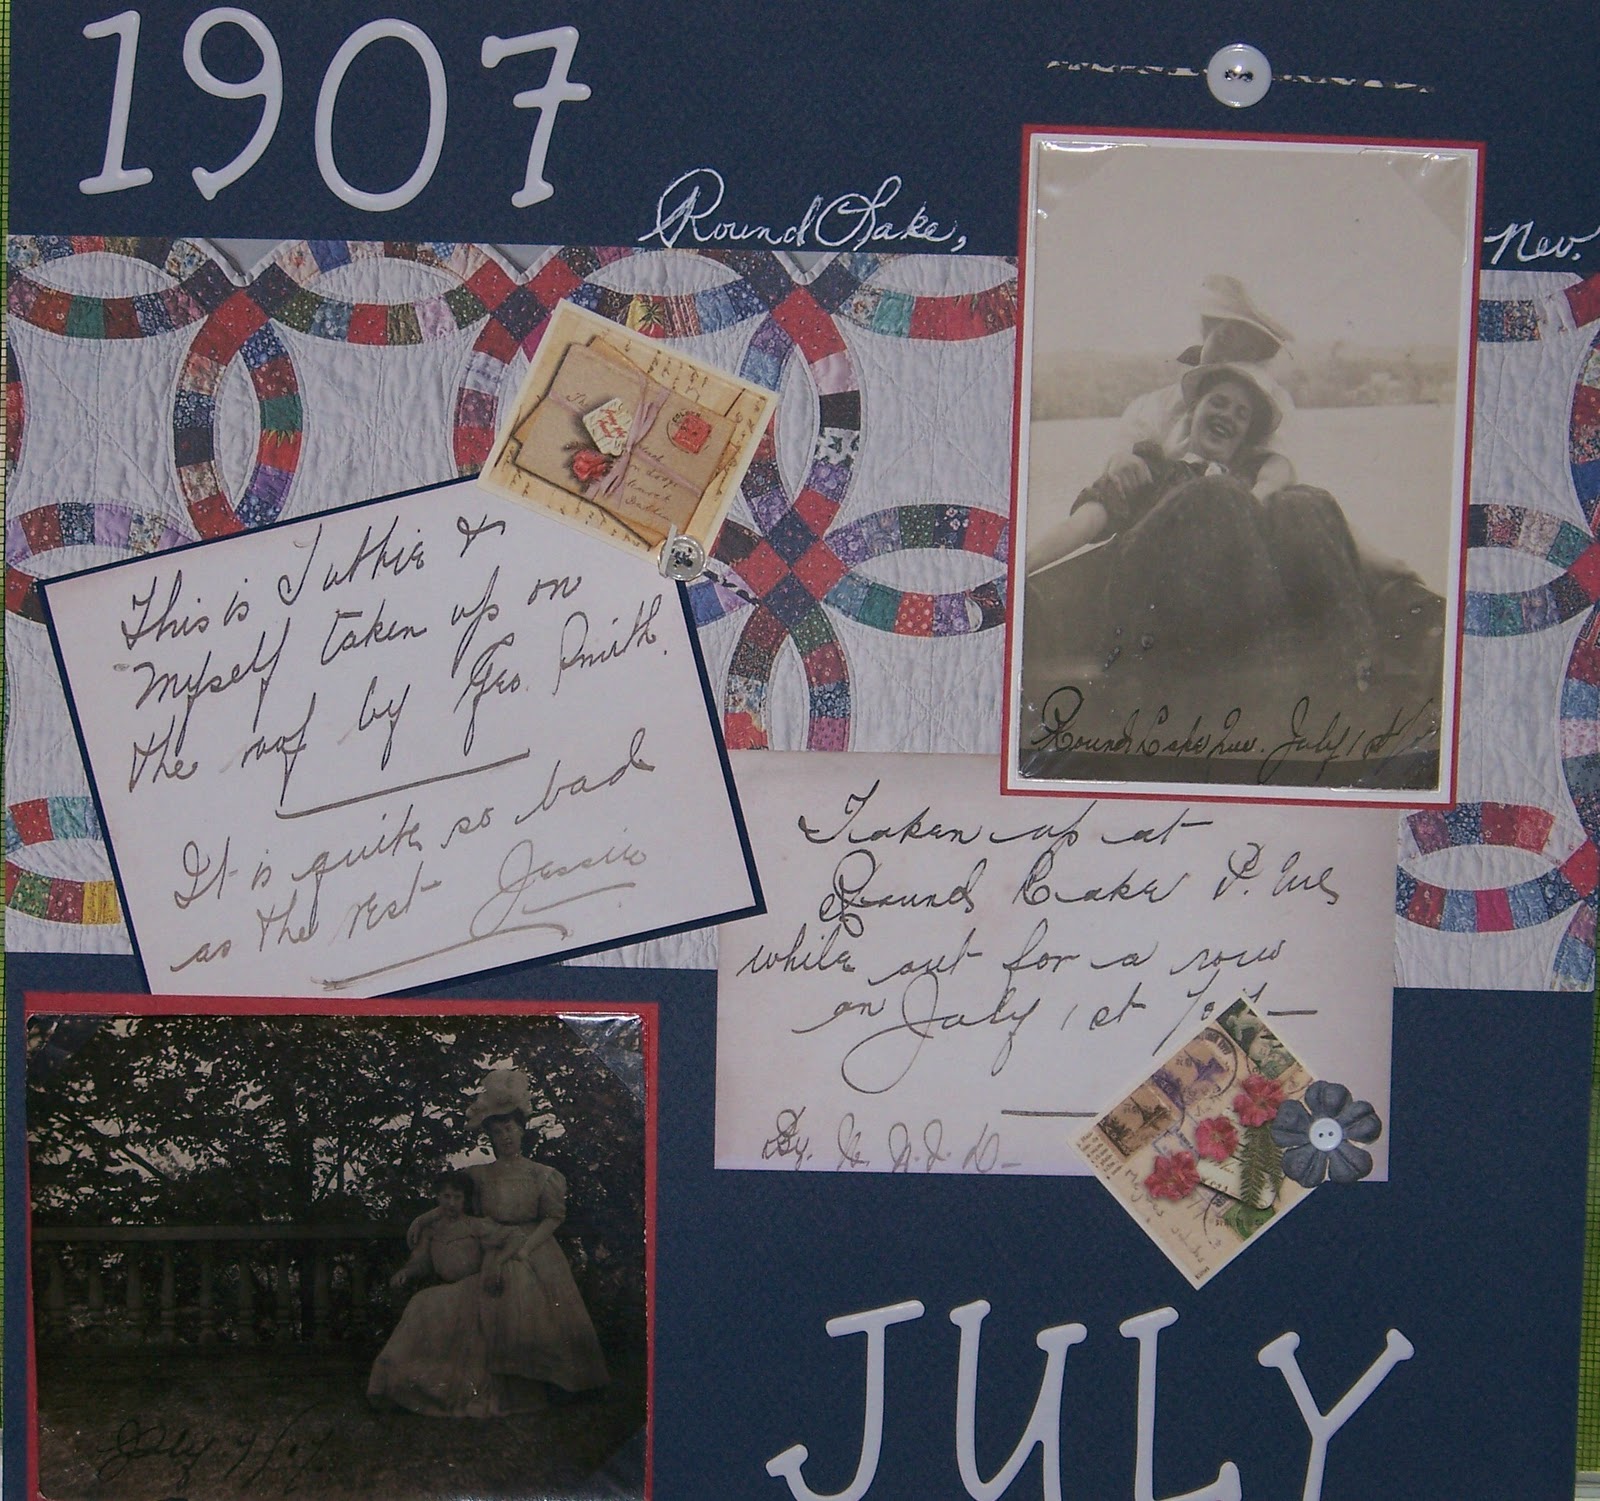 1907
Round Lake, Nov.
This is Tuthie &
Myself taken up on
the roof by Geo. Smith.
It is quite so bad
as the rest Jessie
Round Lake July 1st
Taken up at
Round Lake
while out for a row
on July 1st
By.
July
JULY